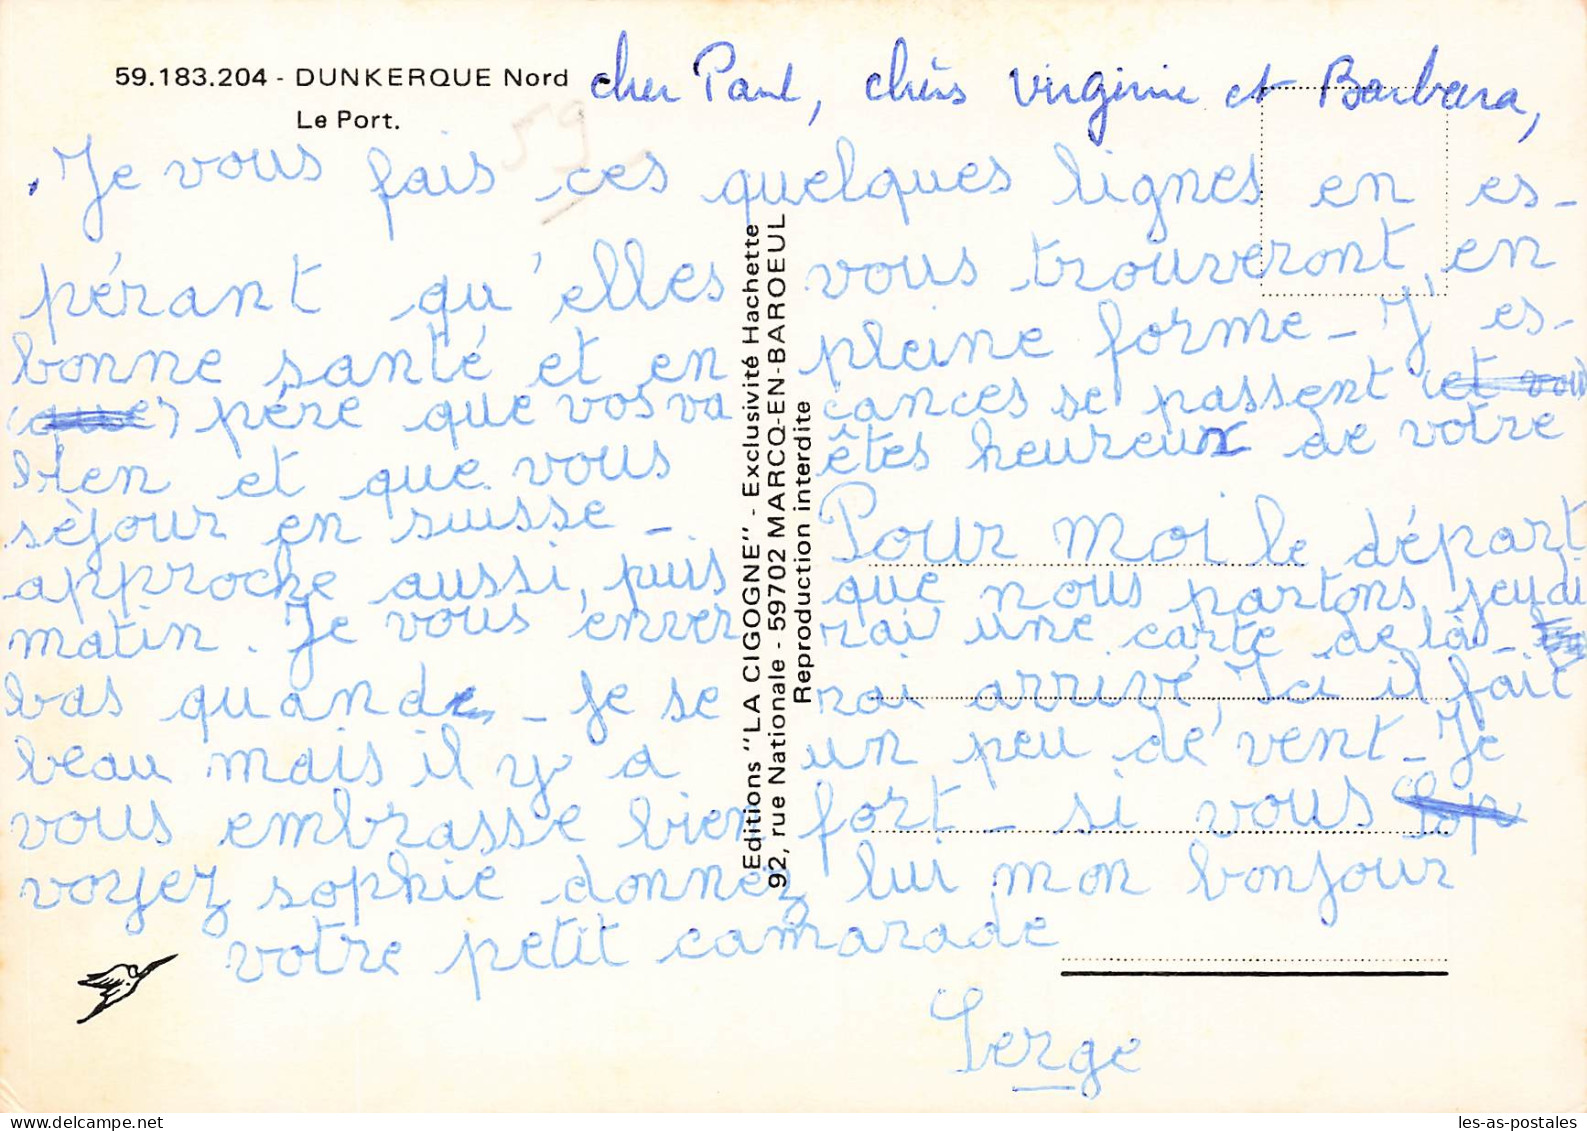 59.183.204 - DUNKERQUE Nord
Le Port.
59
cher Paul, chères Virginie et Barbara,
Je vous fais ces quelques lignes en es-
pérant qu'elles vous trouveront, en
bonne santé et en pleine forme - J'es-
(que) père que vos vacances se passent (et vous
bien et que vous êtes heureux de votre
séjour en suisse - Pour moi le départ
approche aussi, puis que nous partons jeudi
matin. Je vous enverrai une carte de là-
bas quand - je serai arrivé, Ici il fait
beau mais il y a un peu de vent - Je
vous embrasse bien fort - si vous
voyez sophie donnez lui mon bonjour
votre petit camarade
Serge
Editions "LA CIGOGNE" - Exclusivité Hachette
92, rue Nationale - 59702 MARCQ-EN-BAROEUL
Reproduction interdite
les-as-postales